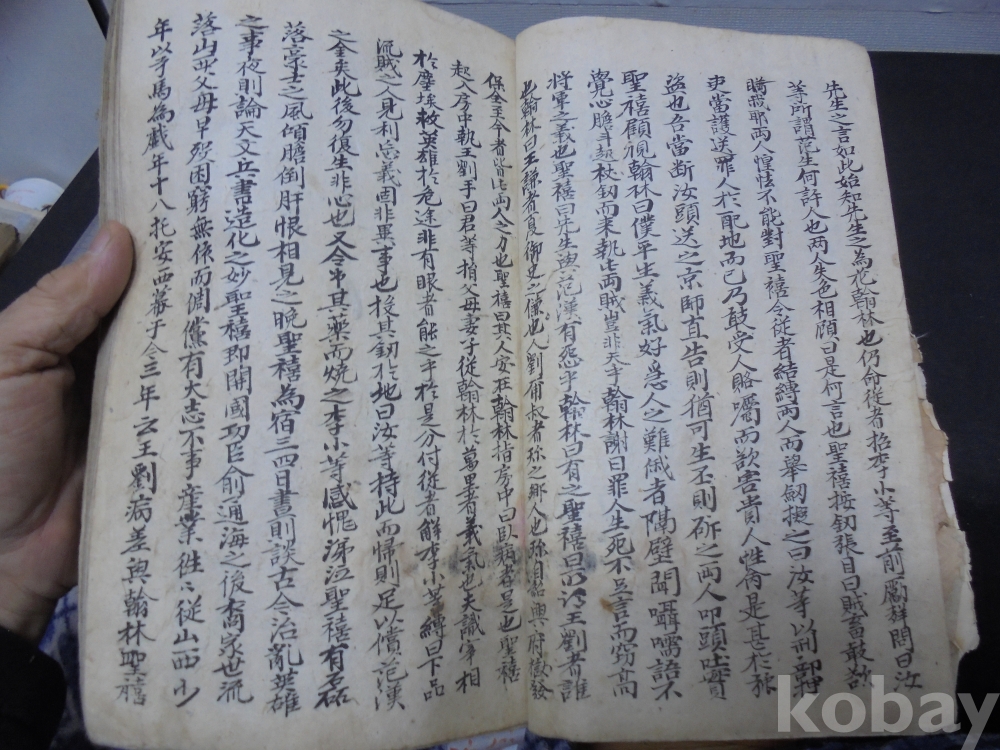 先生之言如此始知先生之爲花翰林也仍命從者招李小等至前厲聲問曰汝
等所謂范生何許人也兩人失色相顧曰是何言也聖禧按釖張目曰賊畜敢詐
瞞我耶兩人惶怯不能對聖禧令從者結縛兩人而擧釰擬之曰汝等以刑部
吏當護送罪人於配地而已乃敢受人賂囑而欲害貴人性命是甚於
盜也吾當斷汝頭送之京師直告則猶可生否則斫之兩人叩頭吐實
聖禧顧視翰林曰僕平生義氣好急人之難俄者隔壁聞囁嚅語不
覺心膽斗起杖釰而來執此兩賊豈非天乎翰林謝曰罪人生死不足言而窃高
將軍之義也聖禧曰先生與范漢有怨乎翰林曰有之聖禧曰王劉者誰
也翰林曰王謙者夏御史之傔也劉甫叔者之鄰人也自與府
保全至今者皆此兩人之力也聖禧曰其人安在翰林指房中曰臥病者是也聖禧
起入房中執王劉手曰君等捐父母妻子從翰林於萬里者義氣也夫識宰相
於塵埃救英雄於危途非有眼者能之乎於是分付從者解李小等縛曰下品
流賊之人見利忘義固非異事也投其釰於地曰汝等持此而歸則足以償范漢
之金矣此後勿復生非心也又令弔其藥而燒之李小等感愧涕泣聖禧有磊
落豪士之風傾膽倒肝恨相見之晚聖禧爲宿三四日晝則談古今治亂英雄
之事夜則論天文兵書造化之妙聖禧即開國功臣兪通海之後裔家世流
落山西父母早歿困窮無依而倜儻有大志不事産業徃〻從山西少
年以弓馬爲戱年十八托安西幕于今三年云王劉病差與翰林聖禧
kobay